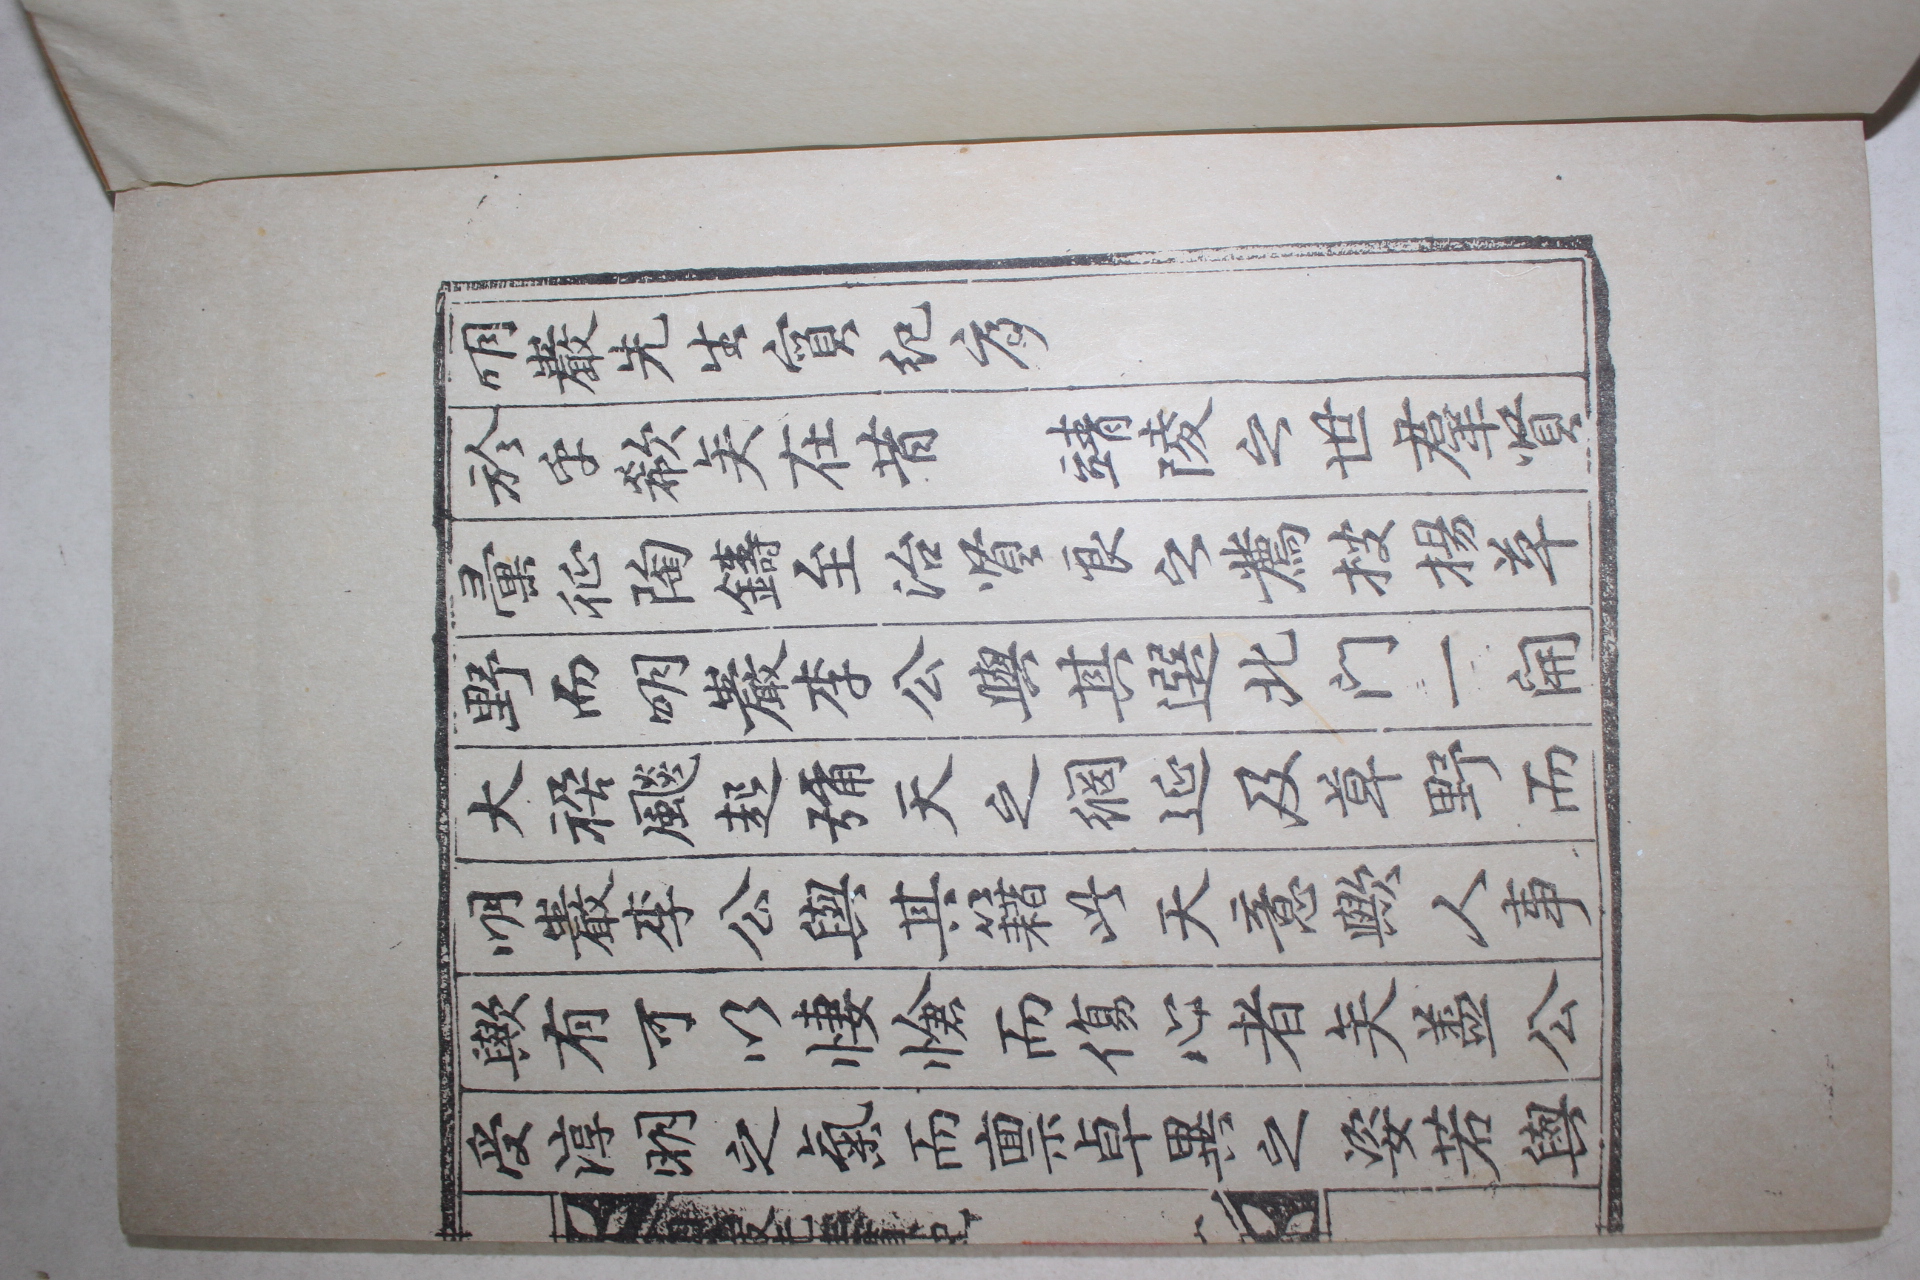 明巖先生實紀序
於乎欷矣在昔　靖陵之世羣賢
彙征陶鑄至治賢良之薦披揚草
野而明巖李公與其選北门一開
大禍颷起彌天之網延及草野而
明巖李公與其籍此天意歟人事
歟有可以悽愴而傷心者矣盖公
受淳明之氣而禀卓異之姿若與